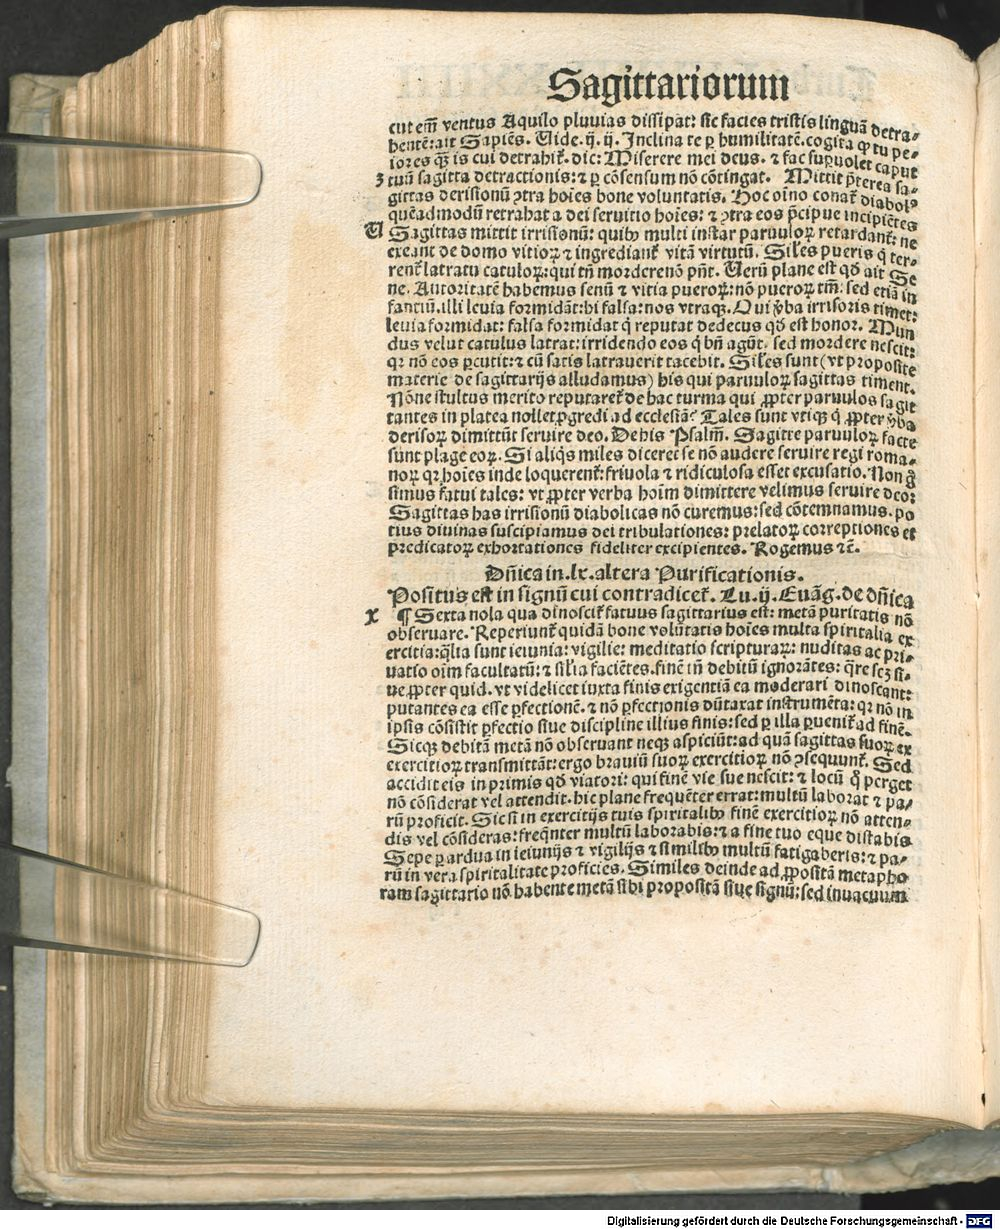 Sagittariorum
cut em̄ ventus Aquilo pluuias dissipat: sic facies tristis linguā detra-
hentē: ait Sapiēs. Vide .ij. ij. Inclina te ꝑ humilitatē. cogita ꝙ tu pe-
iores qͣꝫ is cui detrahit᷑. dic: Miserere mei deus. ⁊ fac suꝑuolet caput
3 tuū sagitta detractionis: ⁊ ꝑ cōsensum nō cōtingat. Mittit p̄terea sa-
gittas derisionū ꝯtra hoīes bone voluntatis. Hoc oīno conat᷑ diabolꝰ
quēadmodū retrahat a dei seruitio hoīes: ⁊ ꝯtra eos p̄cipue incipiētes
V Sagittas mittit irrisionū: quibꝰ multi instar paruuloꝝ retardant᷑: ne
exeant de domo vitioꝝ ⁊ ingrediant᷑ vitā virtutū. Siles pueris q̇ ter-
rent᷑ latratu catuloꝝ: qui tn̄ mordere nō pn̄t. Verū plane est qd̄ ait Se
ne. Autoritatē habemus senū ⁊ vitia pueroꝝ: nō pueroꝝ tm̄: sed etiā in
fantiū. illi leuia formidāt: hi falsa: nos vtraqꝫ. Qui v̄ba irrisoris timet:
leuia formidat: falsa formidat q̇ reputat dedecus qd̄ est honor. Mun
dus velut catulus latrat: irridendo eos q̇ bn̄ agūt. sed mordere nescit:
qꝛ nō eos ꝑcutit: ⁊ cū satis latrauerit tacebit. Siles sunt (vt proposite
materie de sagittarijs alludamus) his qui paruuloꝝ sagittas timent.
Nōne stultus merito reputaret᷑ de hac turma qui ꝓpter paruulos sagit
tantes in platea nollet ꝓgredi ad ecclesiā? Tales sunt vtiqꝫ q̇ ꝓpter v̄ba
derisoꝝ dimittūt seruire deo. De his Psalm̄. Sagitte paruuloꝝ facte
sunt plage eoꝝ. Si aliqͥs miles diceret se nō audere seruire regi roma-
noꝝ qꝛ hoīes inde loquerent᷑: friuola ⁊ ridiculosa esset excusatio. Non g̊
simus fatui tales: vt ꝓpter verba hoīm dimittere velimus seruire deo:
Sagittas has irrisionū diabolicas nō curemus: sed cōtemnamus. po
tius diuinas suscipiamus dei tribulationes: prelatoꝝ correptiones et
predicatoꝝ exhortationes fideliter excipientes. Rogemus ⁊c̄.
Dn̄ica in .lx. altera Purificationis.
Positus est in signū cui contradicet᷑. Lu. ij. Euāg. de dn̄ica
X ¶ Sexta nola qua dinoscit᷑ fatuus sagittarius est: metā puritatis nō
obseruare. Reperiunt᷑ quidā bone volūtatis hoīes multa spiritalia ex
ercitia: q̄lia sunt ieiunia: vigilie: meditatio scripturaꝝ: nuditas ac pri-
uatio oīm facultatū: ⁊ silia faciētes. finē tn̄ debitū ignorātes: q̄re scꝫ si-
ue ꝓpter quid. vt videlicet iuxta finis exigentiā ea moderari dinoscant:
putantes ea esse ꝑfectionē. ⁊ nō ꝑfectionis dūtaxat instrumēta: qꝛ nō in
ipsis cōsistit ꝑfectio siue discipline illius finis: sed ꝑ illa ꝑuenit᷑ ad finē.
Sicqꝫ debitā metā nō obseruant neqꝫ aspiciūt: ad quā sagittas suoꝝ ex
exercitioꝝ transmittāt: ergo brauiū suoꝝ exercitioꝝ nō ꝯsequunt᷑. Sed
accidit eis in primis qd̄ viatori: qui finē vie sue nescit: ⁊ locū q̊ perget
nō cōsiderat vel attendit. hic plane frequēter errat: multū laborat ⁊ pa-
rū proficit. Sic si in exercitijs tuis spiritalibꝰ finē exercitioꝝ nō atten-
dis vel cōsideras: freq̄nter multū laborabis: ⁊ a fine tuo eque distabis
Sepe ꝑ ardua in ieiunijs ⁊ vigilijs ⁊ similibꝰ multū fatigaberis: ⁊ pa-
rū in vera spiritalitate proficies. Similes deinde ad ꝓpositā metapho
ram sagittario nō habente metā sibi propositā siue signū: sed in vacuum
Digitalisierung gefördert durch die Deutsche Forschungsgemeinschaft - DFG